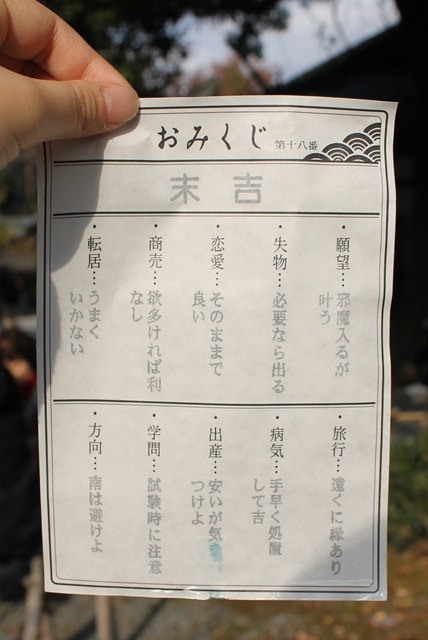 おみくじ 第十八番
末吉
・願望…邪魔入るが
叶う
・失物…必要なら出る
・恋愛…そのままで
良い
・商売…欲多ければ利
なし
・転居…うまく
いかない
・旅行…遠くに縁あり
・病気…手早く処置
して吉
・出産…安いが気
つけよ
・学問…試験時に注意
・方向…南は避けよ